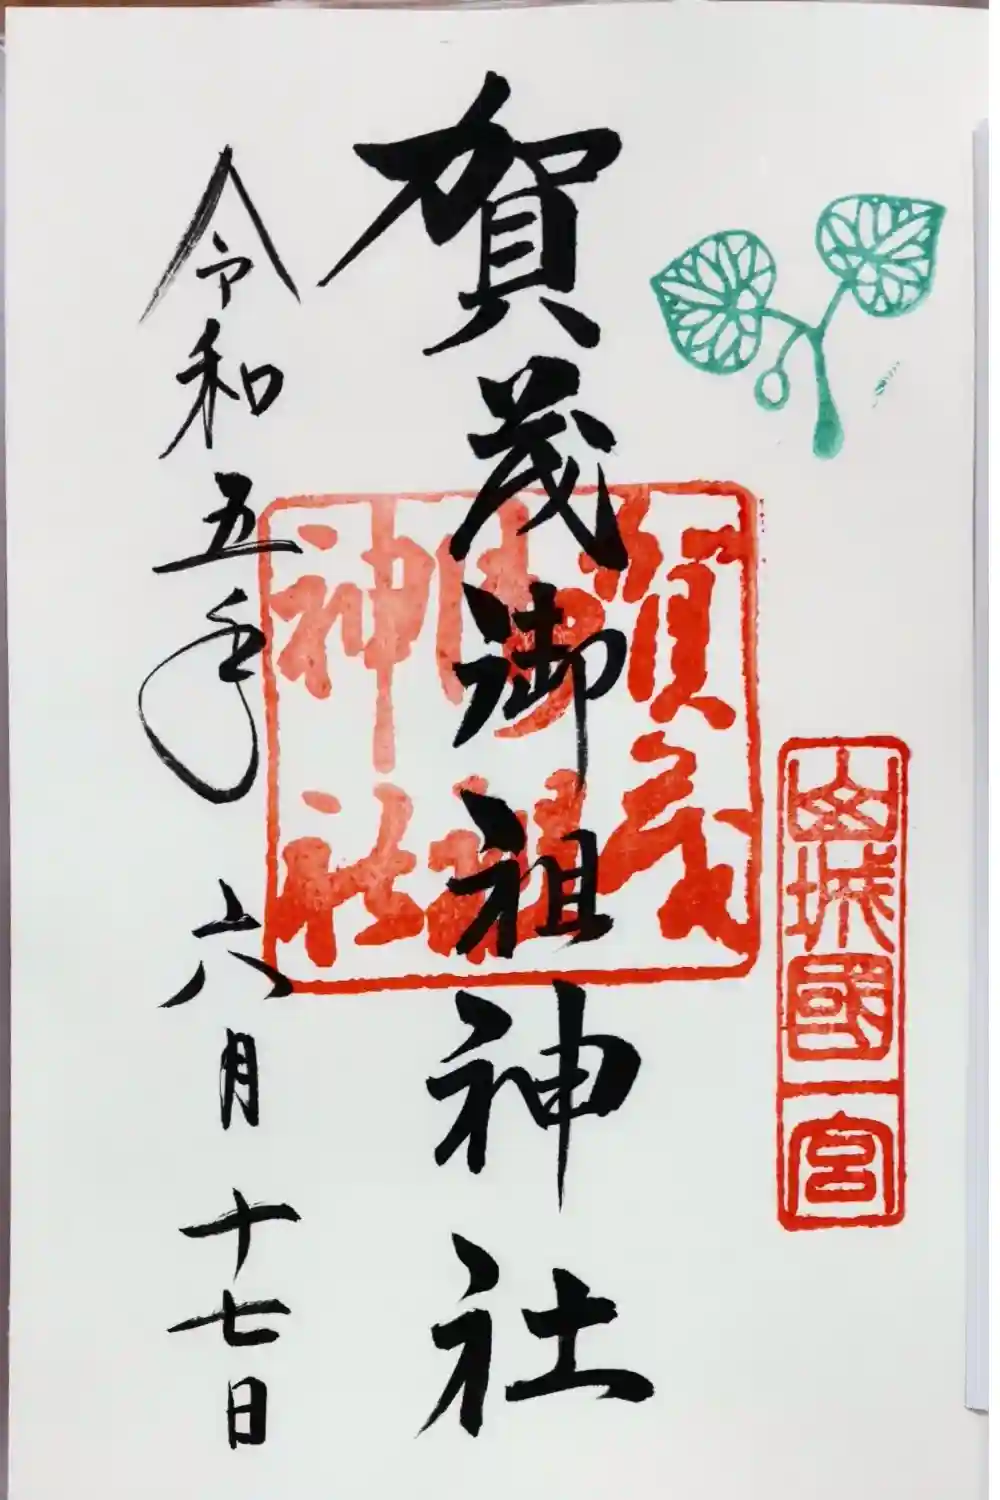 山城國一宮
賀茂御祖神社
賀茂
御祖
神社
令和五年六月十七日